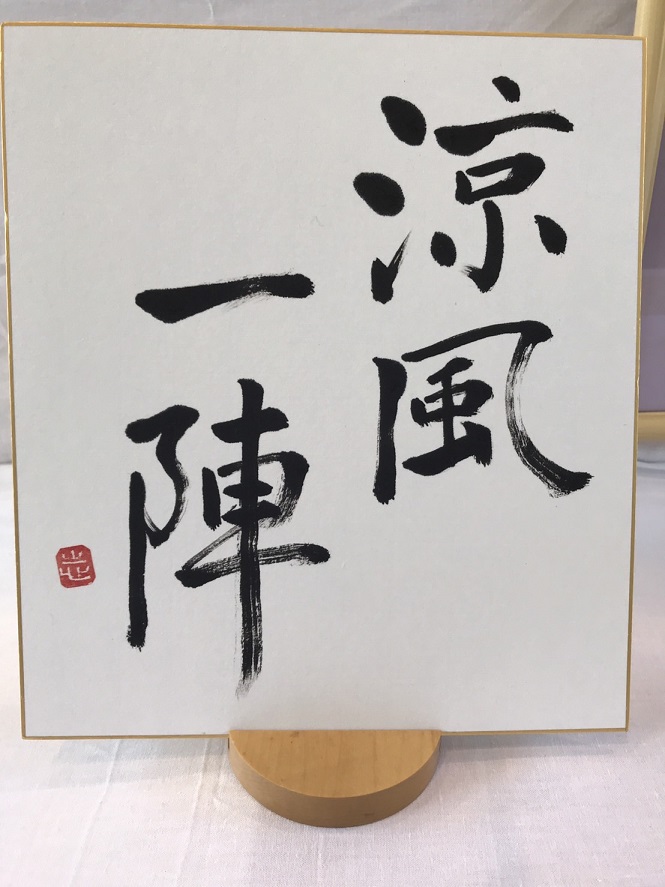 涼風
一陣